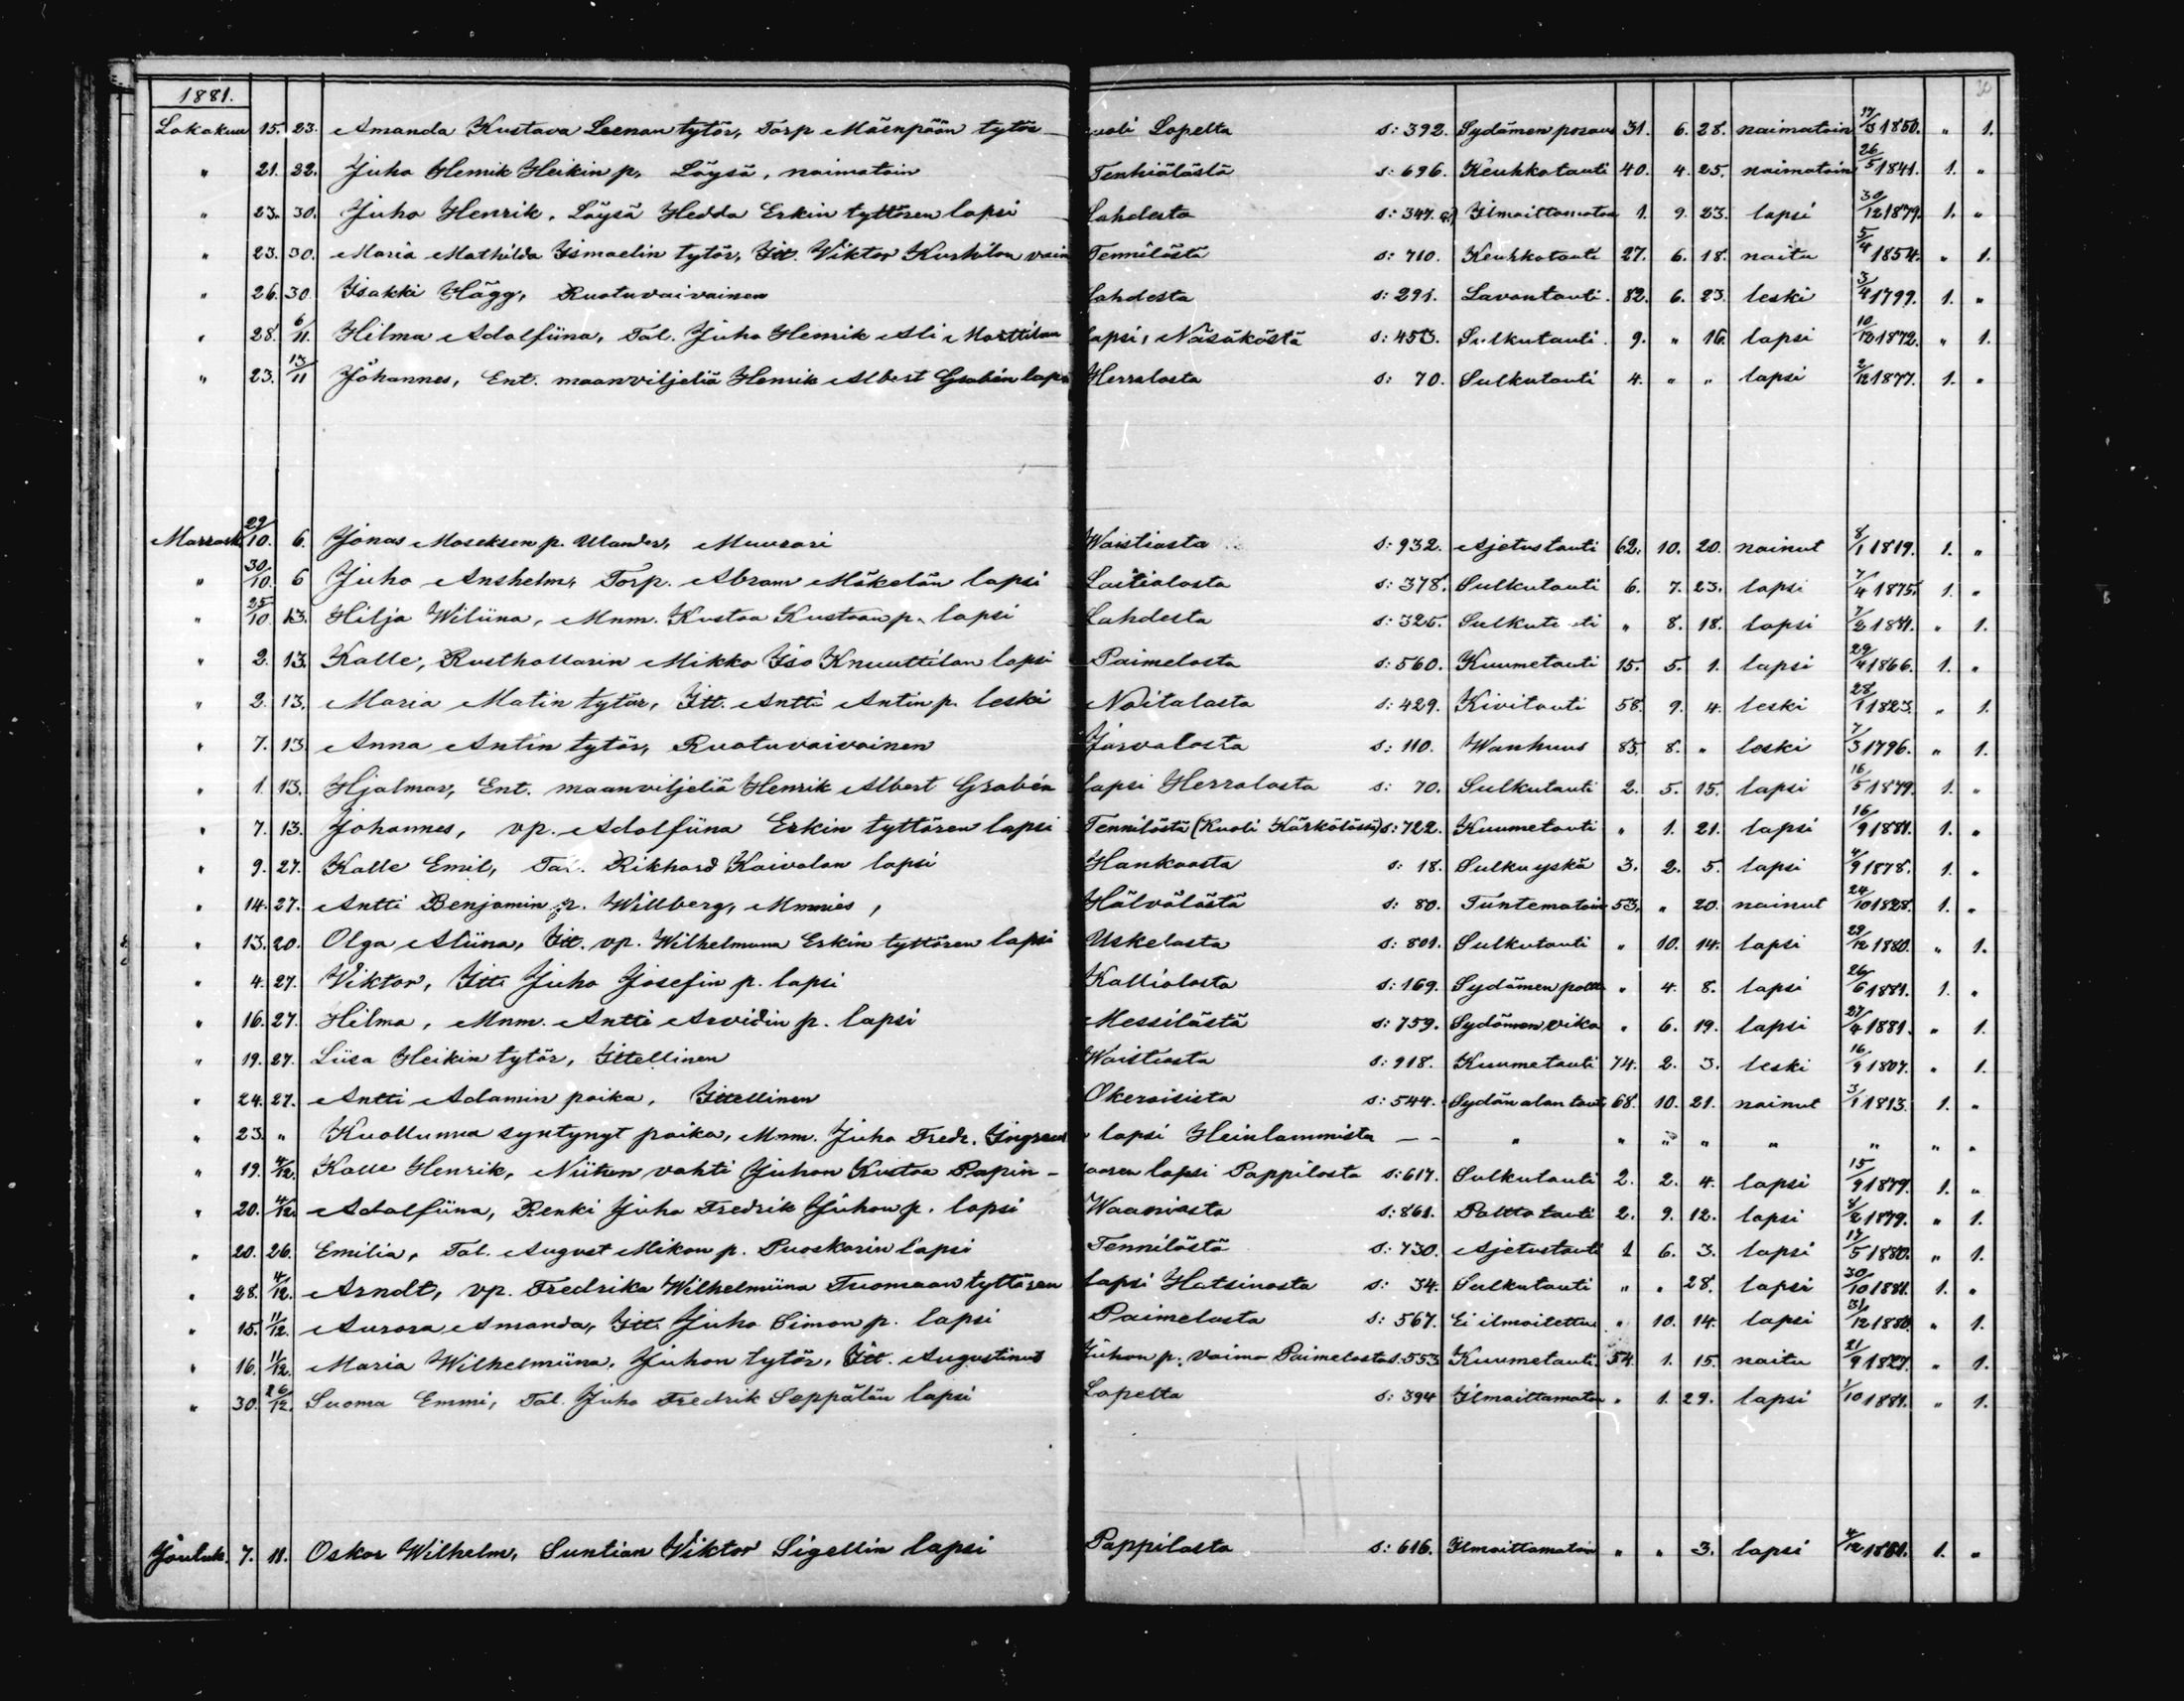 30
1881.
Lokakuu 15. 23. Amanda Kustava Leenan tytär, Torp Mäenpään tytär kuoli Lopelta s: 392. Sydämen poraus 31. 6. 28. naimatoin 17/3 1850. " 1.
" 21. 22. Juho Henrik Heikin p. Löysä, naimatoin Tenhiälästä s: 696. Keuhkotauti 40. 4. 25. naimatoin 26/5 1841. 1. "
" 23. 30. Juho Henrik, Löysä Hedda Erkin tyttären lapsi Lahdesta s: 347. Ilmoittamaton 1. 9. 23. lapsi 30/12 1879. 1. "
" 23. 30. Maria Mathilda Ismaelin tytär, Itt. Viktor Kurkilan vaim Tennilästä s: 710. Keuhkotauti 27. 6. 18. naitu 5/4 1854. " 1.
" 26. 30 Isakki Hägg, Ruotuvaivainen Lahdesta s: 291. Lavantauti. 82. 6. 23. leski 3/4 1799. 1. "
" 28. 6/11. Hilma Adolfiina, Tal. Juho Henrik Ali Marttilan lapsi, Näsäköstä s: 453. Sulkutauti. 9. " 16. lapsi 10/12 1872. " 1.
" 23. 13/11 Johannes, Ent. maanviljeliä Henrik Albert Grabén laps Herralasta s: 70. Sulkutauti 4. " " lapsi 2/12 1877. 1. "
Marrask. 29/10. 6. Jonas Moseksen p. Ulander, Muurari Waistiasta s: 932. Ajetustauti 62. 10. 20. nainut 8/1 1819. 1. "
" 30/10. 6 Juho Anshelm, Torp. Abram Mäkelän lapsi Laitialasta s: 378. Sulkutauti 6. 7. 23. lapsi 7/4 1875. 1. "
" 25/10 13. Hilja Wiliina, Mnm. Kustaa Kustaan p. lapsi Lahdesta s: 325. Sulkut ti " 8. 18. lapsi 7/2 1881. " 1.
" 2. 13. Kalle, Rusthollarin Mikko Iso Knuuttilan lapsi Paimelasta s: 560. Kuumetauti 15. 5. 1. lapsi 29/4 1866. 1. "
" 2. 13. Maria Matin tytär, Itt. Antti Antin p. leski Noitalasta s: 429. Kivitauti 58. 9. 4. leski 28/1 1823. " 1.
" 7. 13. Anna Antin tytär, Ruotuvaivainen Järvalasta s: 110. Wanhuus 85. 8. " leski 7/3 1796. " 1.
" 1. 13. Hjalmar, Ent. maanviljeliä Henrik Albert Grabén lapsi Herralasta s: 70. Sulkutauti 2. 5. 15. lapsi 16/5 1879. 1. "
" 7. 13. Johannes, vp. Adolfiina Erkin tyttären lapsi Tennilästä (Kuoli Kärkölässä) s: 722. Kuumetauti " 1. 21. lapsi 16/9 1881. 1. "
" 9. 27. Kalle Emil, Tal. Rikhard Kaivolan lapsi Hankaasta s: 18. Sulkuyskä 3. 2. 5. lapsi 4/9 1878. 1. "
" 14. 27. Antti Benjamin p. Willberg, Mmnies, Hälvälästä s: 80. Tuntematoin 53. " 20. nainut 24/10 1828. 1. "
" 13. 20. Olga Aliina, Itt. vp. Wilhelmina Erkin tyttären lapsi Uskelasta s: 801. Sulkutauti " 10. 14. lapsi 29/12 1880. " 1.
" 4. 27. Viktor, Itt. Juho Josefin p. lapsi Kalliolasta s: 169. Sydämen poltt " 4. 8. lapsi 26/6 1881. 1. "
" 16. 27. Hilma, Mnm. Antti Arvidin p. lapsi Messilästä s: 759. Sydämen vika " 6. 19. lapsi 27/4 1881. " 1.
" 19. 27. Liisa Heikin tytär, Ittellinen Waistiasta s: 918. Kuumetauti 74. 2. 3. leski 16/9 1807. " 1.
" 24. 27. Antti Adamin poika, Ittellinen Okeroisista s: 544. Sydän alan tauti 68. 10. 21. nainut 3/1 1813. 1. "
" 23. " Kuollunna syntynyt poika, Mnm. Juho Fredr. lapsi Heinlammista — - " " " " " " " "
" 19. 4/12. Kalle Henrik, Niitun vahti Juhon Kustaa Papin- lapsi Pappilasta s: 617. Sulkutauti 2. 2. 4. lapsi 15/9 1879. 1. "
" 20. 4/12. Adolfiina, Renki Juho Fredrik Juhon p. lapsi Waaniasta s: 861. Poltto tauti 2. 9. 12. lapsi 4/2 1879. " 1.
" 20. 26. Emilia, Tal. August Mikon p. Puoskarin lapsi Tennilästä s: 730. Ajetustauti 1 6. 3. lapsi 17/5 1880. " 1.
" 28. 4/12. Arndt, vp. Fredrika Wilhelmiina Tuomaan tyttären lapsi Hatsinasta s: 34. Sulkutauti " " 28. lapsi 30/10 1881. 1. "
" 15. 11/12. Aurora Amanda, Itt. Juho Simon p. lapsi Paimelasta s: 567. Ei ilmoitettu " 10. 14. lapsi 31/12 1880. " 1.
" 16. 11/12. Maria Wilhelmiina, Juhon tytär, Itt. Augustinus Juhon p. vaimo Paimelasta s: 553 Kuumetauti 54. 1. 15. naitu 21/9 1827. " 1.
" 30. 26/12. Suoma Emmi, Tal. Juho Fredrik Seppälän lapsi Lapelta s: 394 Ilmoittamaton " 1. 29. lapsi 1/10 1881. " 1.
Jouluk. 7. 11. Oskar Wilhelm, Suntian Viktor Sigellin lapsi Pappilasta s: 616. Ilmoittamatoin " " 3. lapsi 4/12 1881. 1. "